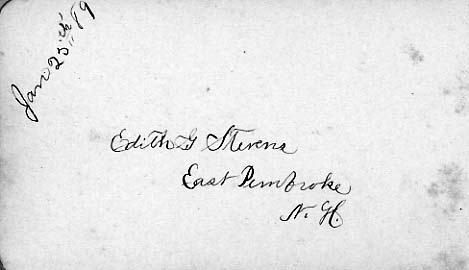 Jan 25th 89
Edith G Stevens
East Pembroke
N. H.